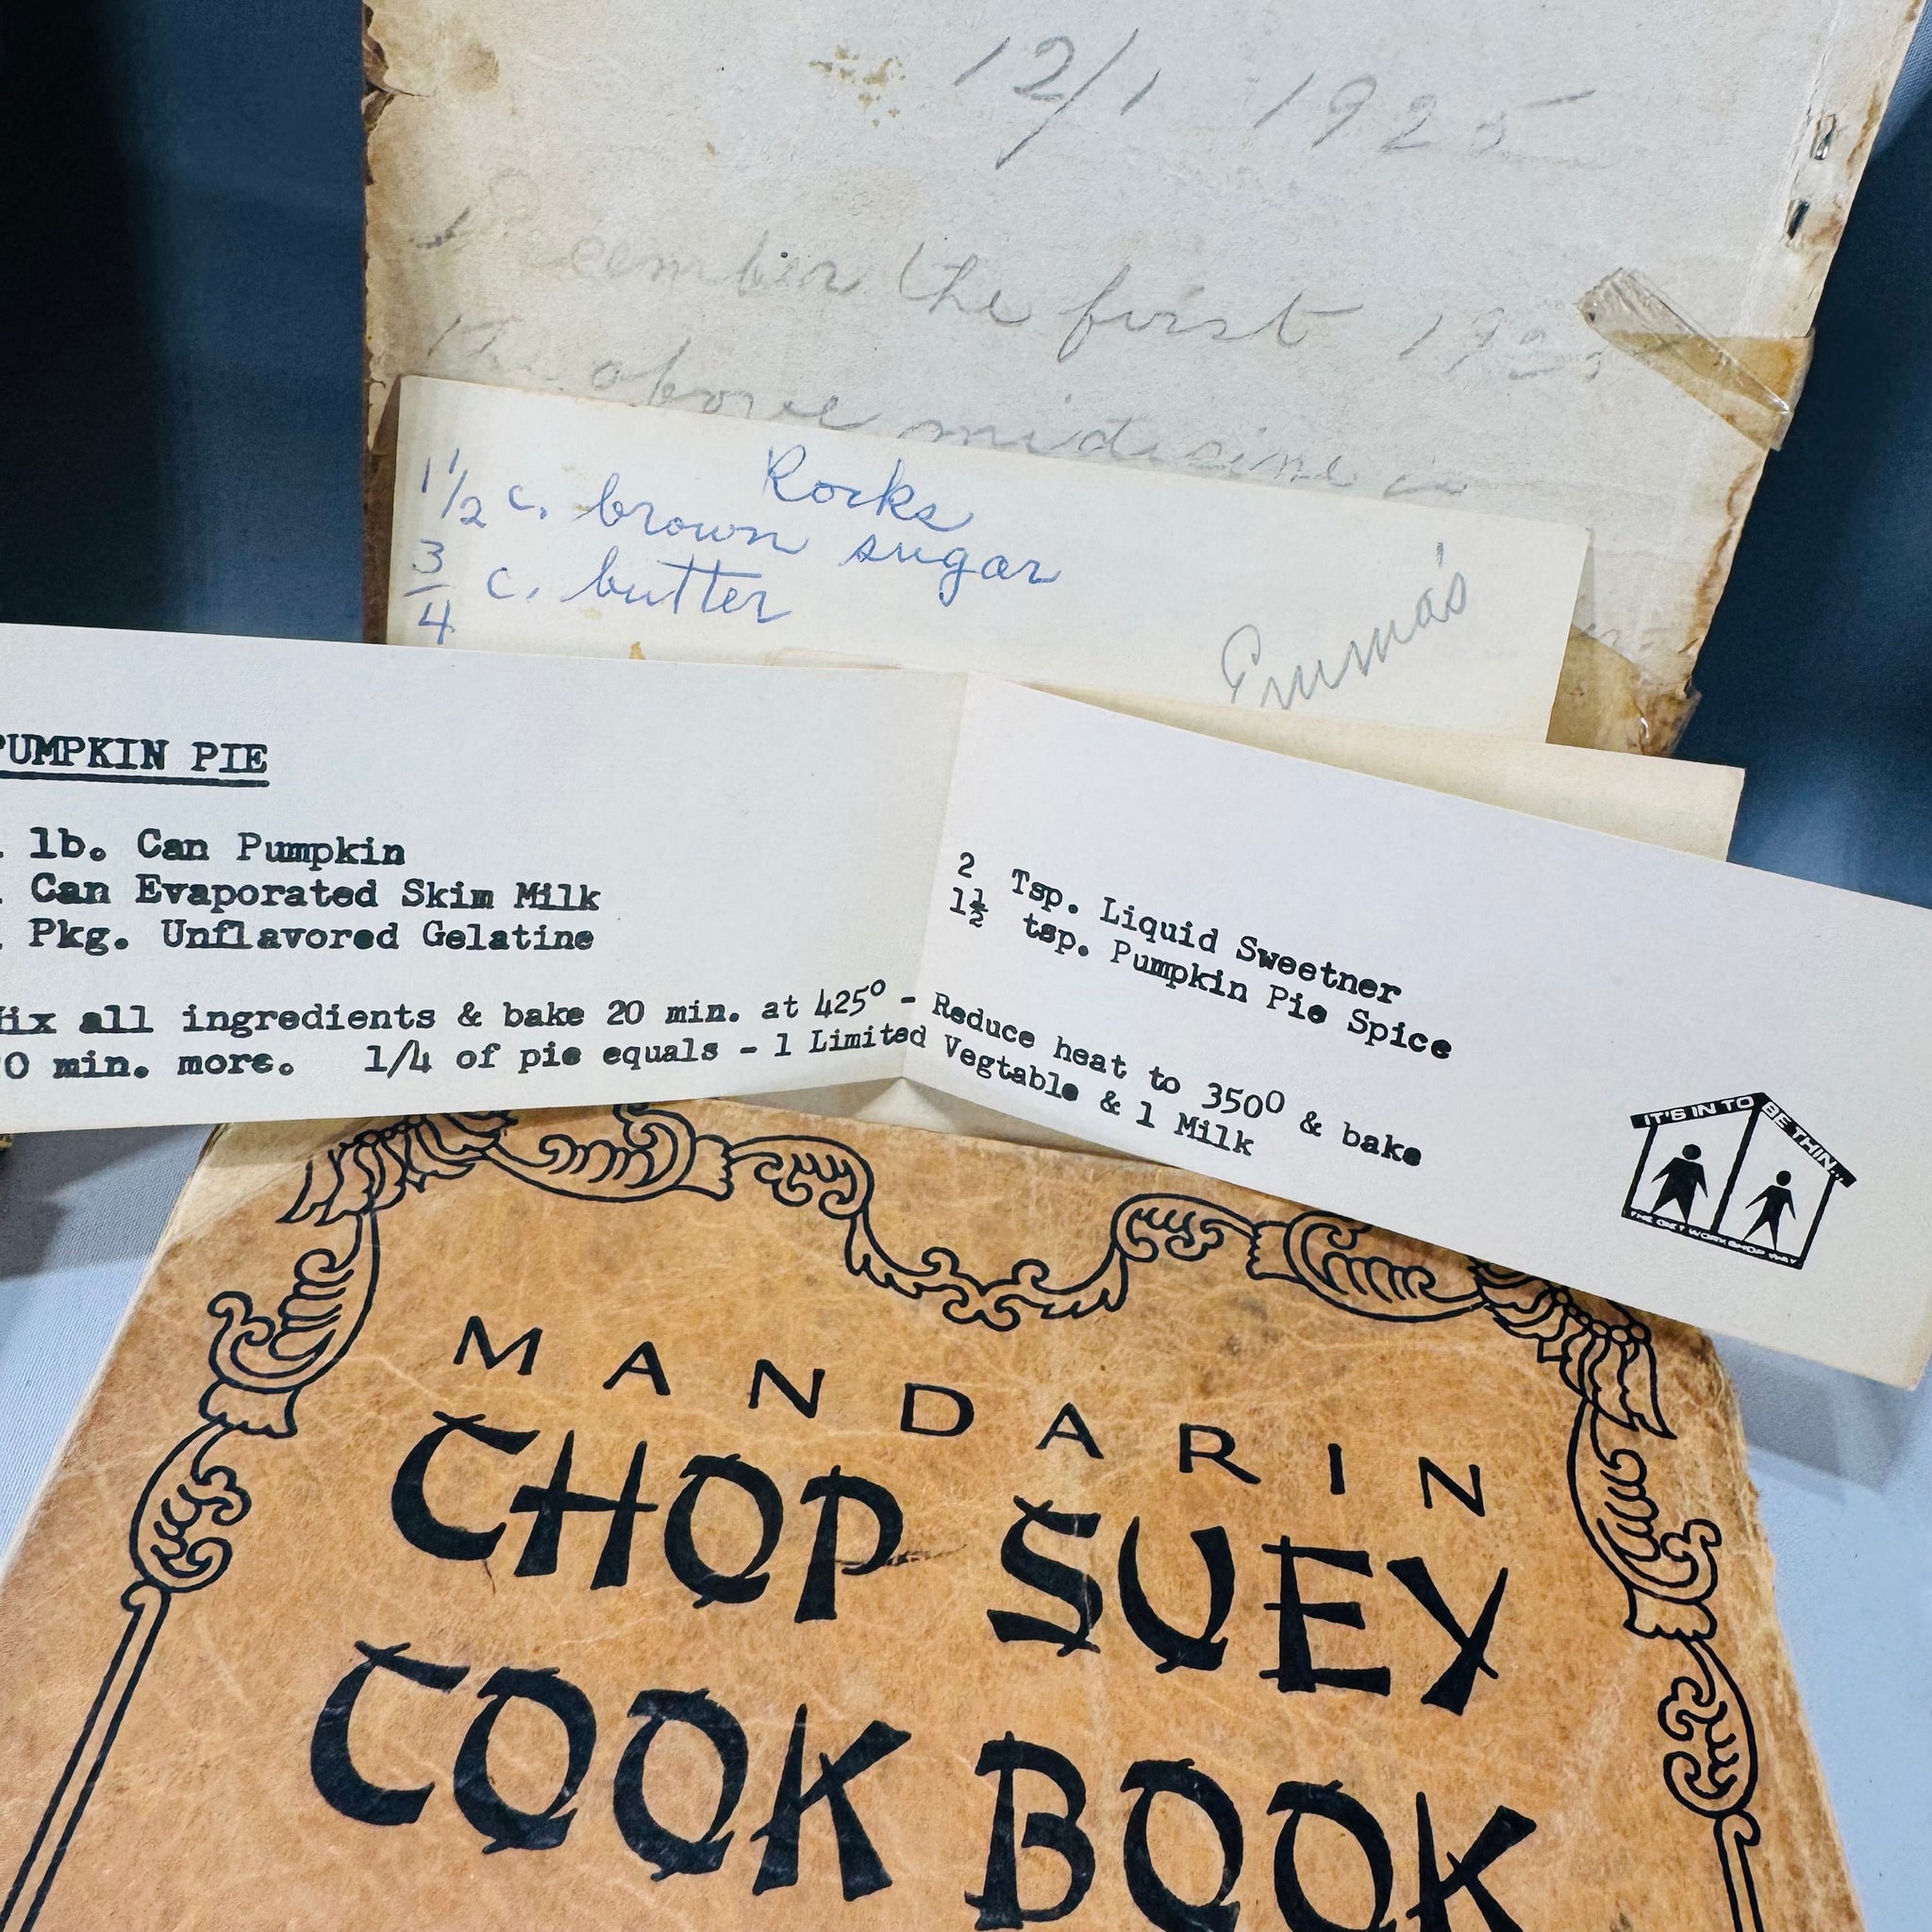 12/1 1925
December the first 1925
the above midisine is
Rocks
1 1/2 c. brown sugar
3/4 c. butter
Emma's
PUMPKIN PIE
lb. Can Pumpkin
Can Evaporated Skim Milk
Pkg. Unflavored Gelatine
2 Tsp. Liquid Sweetner
1½ tsp. Pumpkin Pie Spice
Mix all ingredients & bake 20 min. at 425° - Reduce heat to 350° & bake
0 min. more. 1/4 of pie equals - 1 Limited Vegtable & 1 Milk
IT'S IN TO BE THIN...
THE DIET WORKSHOP WAY
MANDARIN
CHOP SUEY
COOK BOOK